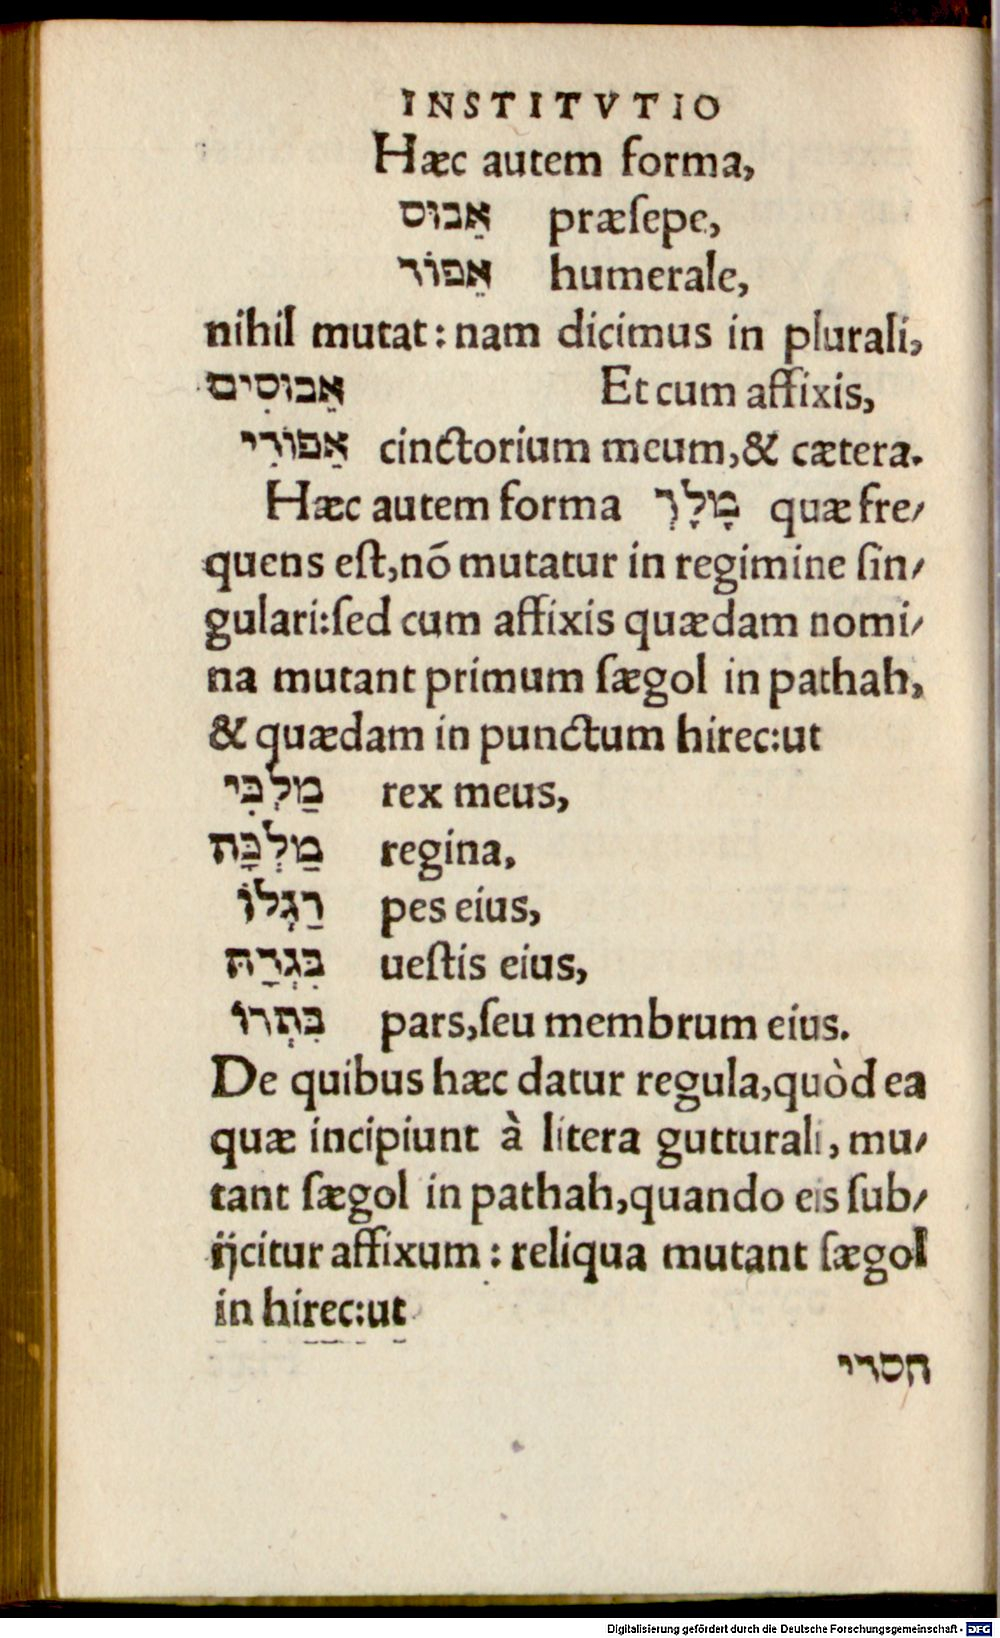 INSTITVTIO
Hæc autem forma,
אֵבוּס præſepe,
אֵפוֹד humerale,
nihil mutat: nam dicimus in plurali,
אֵבוּסִים Et cum affixis,
אֵפוֹדִי cinctorium meum, & cætera.
Hæc autem forma מָלָךְ quæ fre⸗
quens eſt, nō mutatur in regimine ſin⸗
gulari: ſed cum affixis quædam nomi⸗
na mutant primum ſægol in pathah,
& quædam in punctum hirec: ut
מַלְכִּי rex meus,
מַלְכָּה regina,
רַגְלוֹ pes eius,
בִּגְדַהּ ueſtis eius,
בִּתְרוֹ pars, ſeu membrum eius.
De quibus hæc datur regula, quòd ea
quæ incipiunt à litera gutturali, mu⸗
tant ſægol in pathah, quando eis ſub⸗
ijcitur affixum: reliqua mutant ſægol
in hirec: ut
חסדי
Digitalisierung gefördert durch die Deutsche Forschungsgemeinschaft - DFG